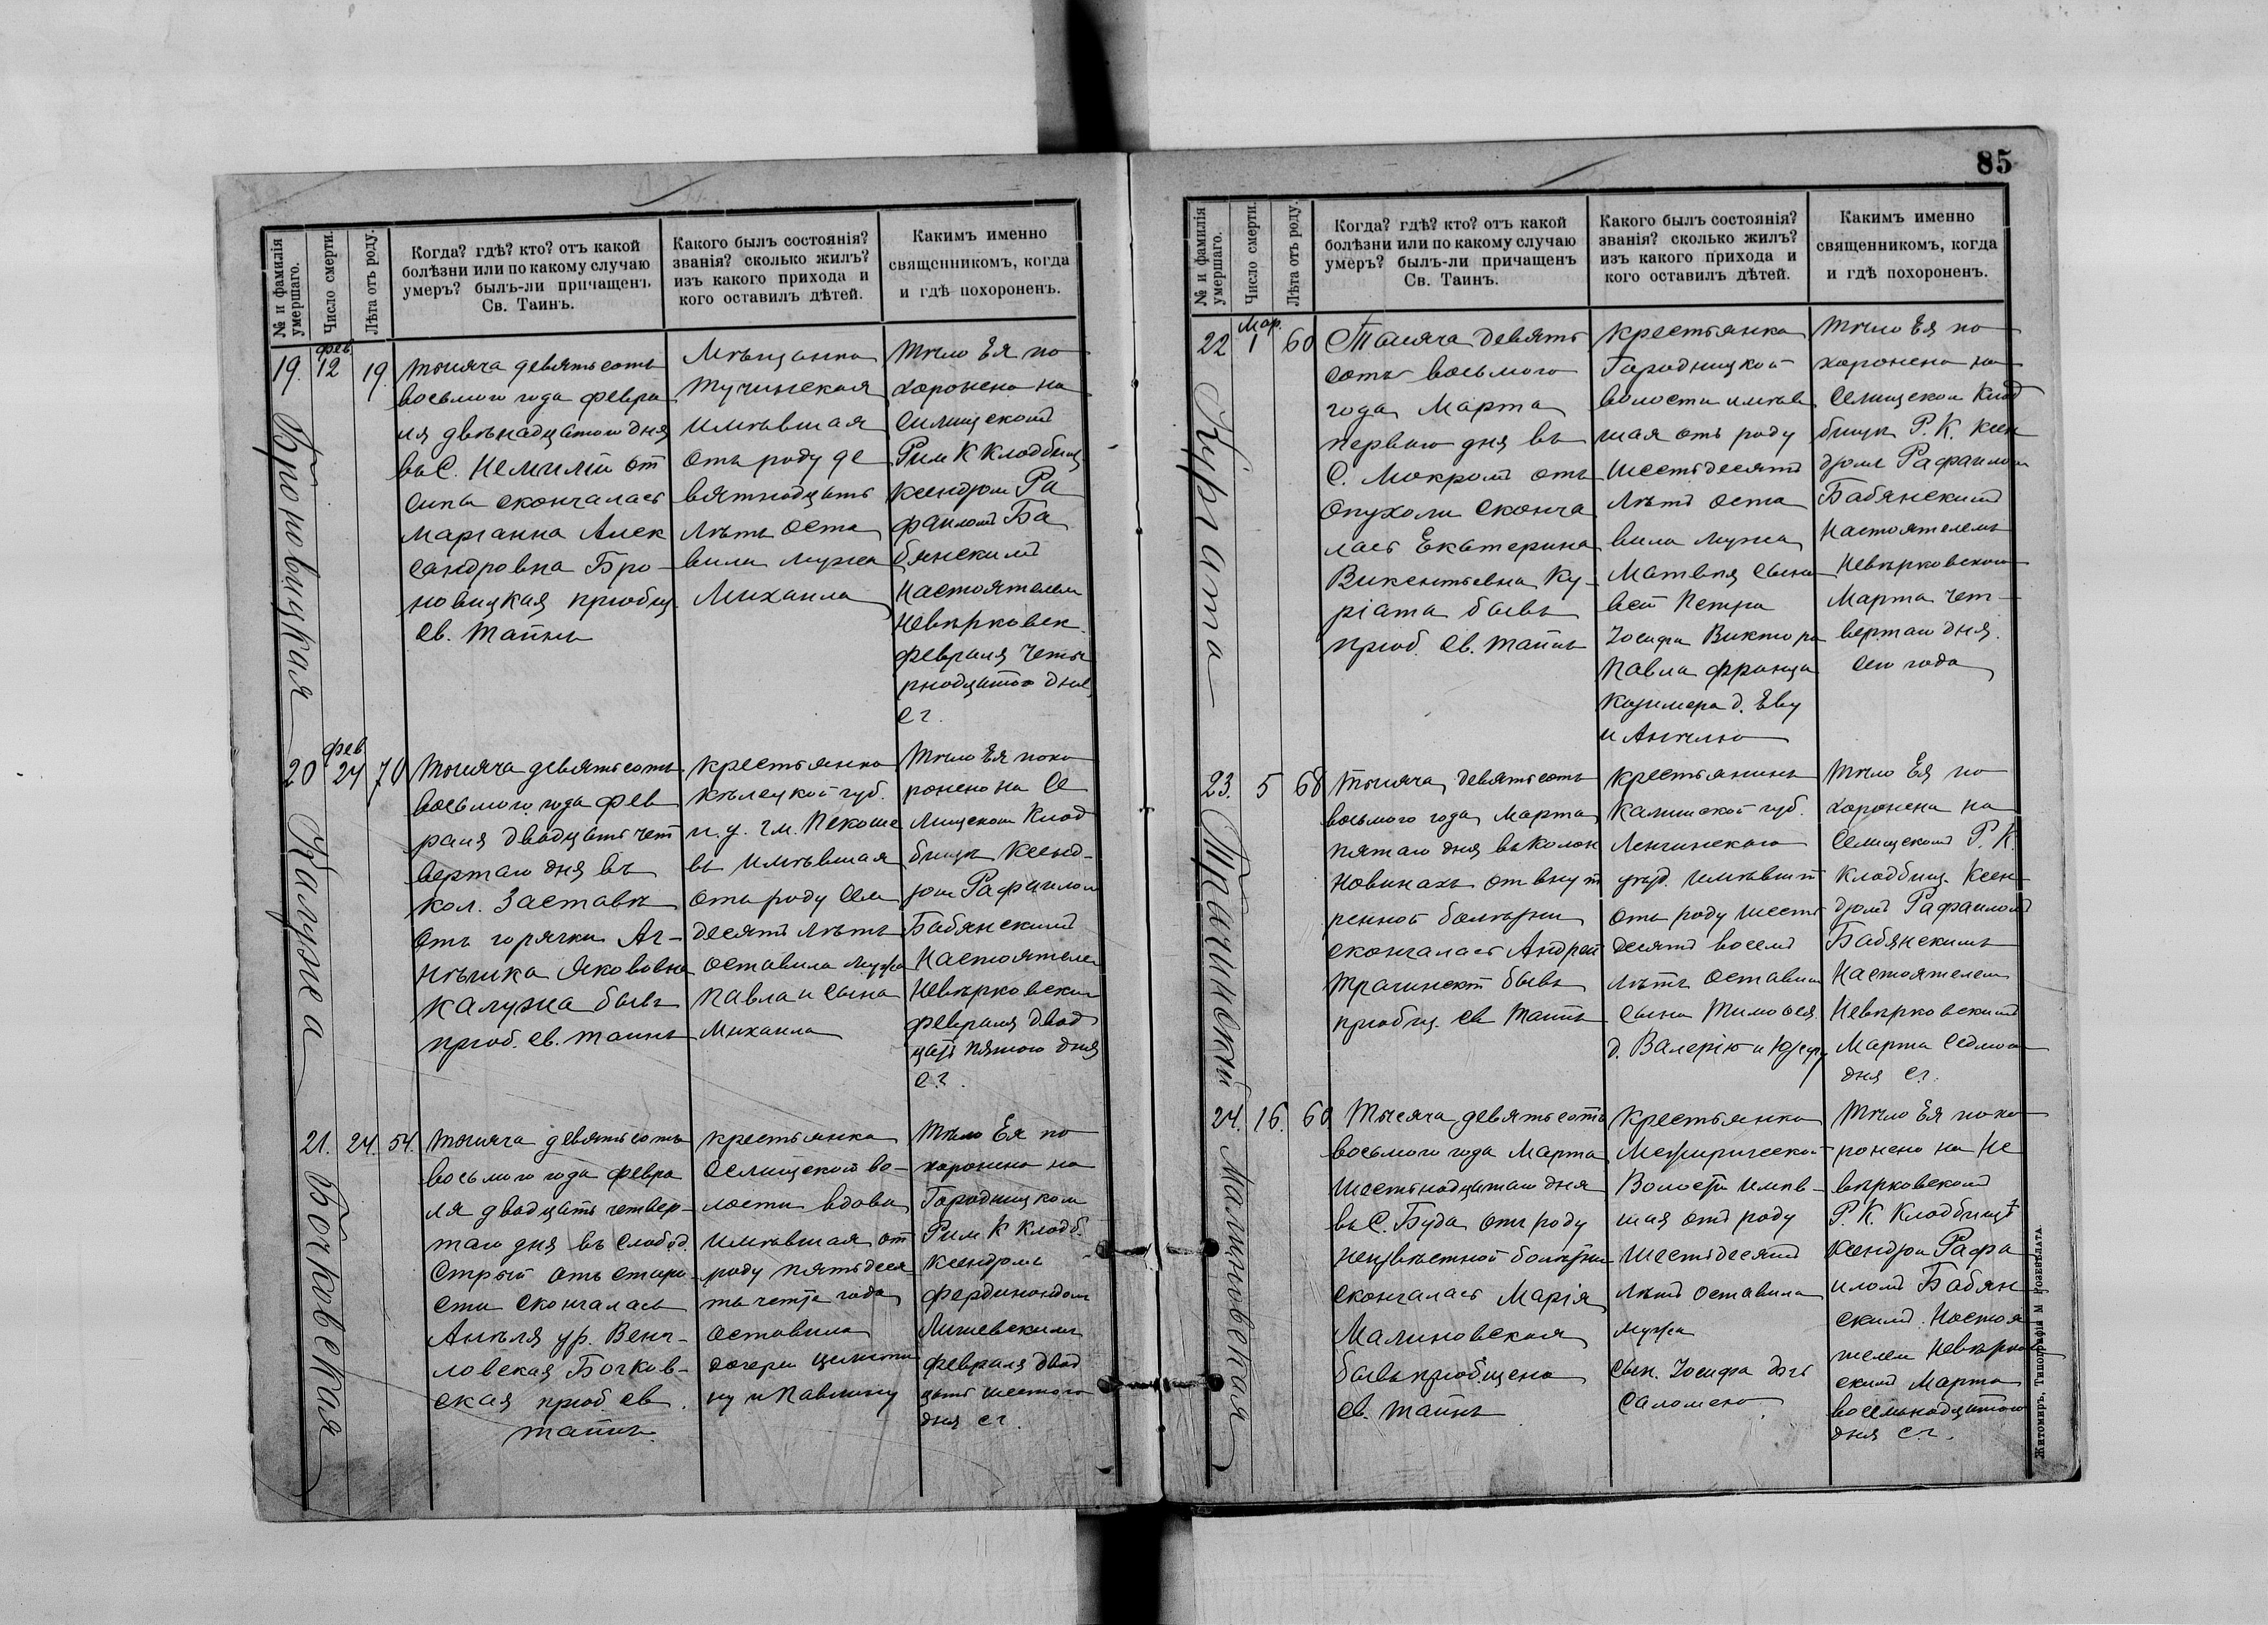 85
№ и фамилія умершаго.
Число смерти.
Лѣта отъ роду.
Когда? гдѣ? кто? отъ какой
болѣзни или по какому случаю
умеръ? былъ-ли причащенъ
Св. Таинъ.
Какого былъ состоянія?
званія? сколько жилъ?
изъ какого прихода и
кого оставилъ дѣтей.
Какимъ именно
священникомъ, когда
и гдѣ похороненъ.
19.
Фев.
12
19.
Броновицкая
тысяча девятьсотъ
восьмого года февра
ля двѣнадцатого дня
въ С. Немилій от
скончалась
Маріанна Алек
сандровна Бро-
новицкая приобщ.
Св. Тайнъ
Мѣщанка
Тучинская
имѣвшая
отъ роду де
вятнадцать
лѣтъ оста
вила мужа
Михаила
Тѣло Ея по
хоронено на
Силищскомъ
Рим К Кладбищ
Ксендзом Ра
фаиломъ Ба
бянскимъ
Настоятелем
Невѣрковск.
февраля четы
рнадцатого дня
с г.
20
Фев.
24
70
Калужа
Тысяча девятьсотъ
восьмого года фев
раля двадцать чет
вертаго дня въ
кол. Заставк
отъ горячки Аг-
нѣшка Якововна
Калужа бывъ
приоб. св. таинъ
крестьянка
Кѣлецкой губ.
и. у. гм. Пекоше
въ имѣвшая
отъ роду сем
десятъ лѣтъ
оставила мужа
Павла и сына
Михаила
Тѣло Ея похо
ронено на Се
лищском Клад
бищѣ Ксенд-
зом Рафаилом
Бабянскимъ
Настоятелем
Невѣрковским
февраля двад
цать пятого дня
с.г.
21.
24.
54.
Бочковская
тысяча девятьсотъ
восьмого года февра
ля двадцать четвер-
таго дня въ слобод.
Стрый отъ старо
сти скончалась
Анѣля ур. Венг-
ловская Бочков-
ская приоб. св.
тайнъ.
крестьянка
Селищской во-
лости вдова
имѣвшая от
роду пятьдеся
тъ четыре года
оставила
дочери Целести
ну и Павлину
Тѣло Ея по
хоронено на
Городницком
Рим К Кладб.
Ксендзомъ
Фердинандом
февраля двад
цать шестого
дня с г.
№ и фамилія умершаго.
Число смерти.
Лѣта отъ роду.
Когда? гдѣ? кто? отъ какой
болѣзни или по какому случаю
умеръ? былъ-ли причащенъ
Св. Таинъ.
Какого былъ состоянія?
званія? сколько жилъ?
изъ какого прихода и
кого оставилъ дѣтей.
Какимъ именно
священникомъ, когда
и гдѣ похороненъ.
22
Мар.
1
60
Куріата
Тысяча девять
сотъ восьмого
года Марта
первого дня въ
С. Мокромъ отъ
опухоли сконча
лась Екатерина
Викентьевна Ку-
ріата бывъ
приоб. Св. Тайнъ
крестьянка
Городницкой
волости имѣв
шая отъ роду
шестьдесятъ
лѣтъ оста
вила мужа
Матвѣя сыно
вей Петра
Іосифа Виктора
Павла Франца
Казимера д. Еву
и Анѣлю
Тѣло Ея по
хоронено на
Селищском Клад
бищѣ Р. К. Ксен
дзомъ Рафаилом
Бабянскимъ
Настоятелемъ
Невѣрковского
Марта чет-
вертаго дня.
сего года
23.
5
68
Трачинскій
Тысяча девятьсотъ
восьмого года Марта
пятаго дня въ Колон
Новинахъ от внут
ренной болѣзни
скончалась Андрей
Трачинскій бывъ
приобщ. св Тайнъ
крестьянинъ
Калишской губ.
Ленчинского
уѣзд. имѣвшій
отъ роду шесть
десятъ восемъ
лѣтъ оставил
сына Тимофея.
д. Валерію и Юзефу
Тѣло Ея по
хоронено на
Селищскомъ Р. К.
Кладбищ. Ксен
дзомъ Рафаиломъ
Бабянскимъ
Настоятелем
Невѣрковскимъ
Марта седмого
дня с г.
24.
16.
60
Малиновская
Тысяча девятьсотъ
восьмого года Марта
шестьнадцатаго дня
въ С. Буда отъ роду
неизвѣстной болѣзни
скончалась Марія
Малиновская
бывъ приобщена
св. тайнъ
крестьянка
Межиричской
Волости имѣв-
шая отъ роду
шестьдесятъ
лѣтъ оставила
мужа
сын. Іосифа дочь
Саломею
Тѣло Ея похо
ронено на Не
вѣрковскомъ
Р. К. Кладбищѣ
Ксендзом Рафа
иломъ Бабян
скимъ Настоя
телем Невѣрков
скимъ Марта
восемнадцатого
дня с.г.
Житомиръ, Типографія М Розенблата